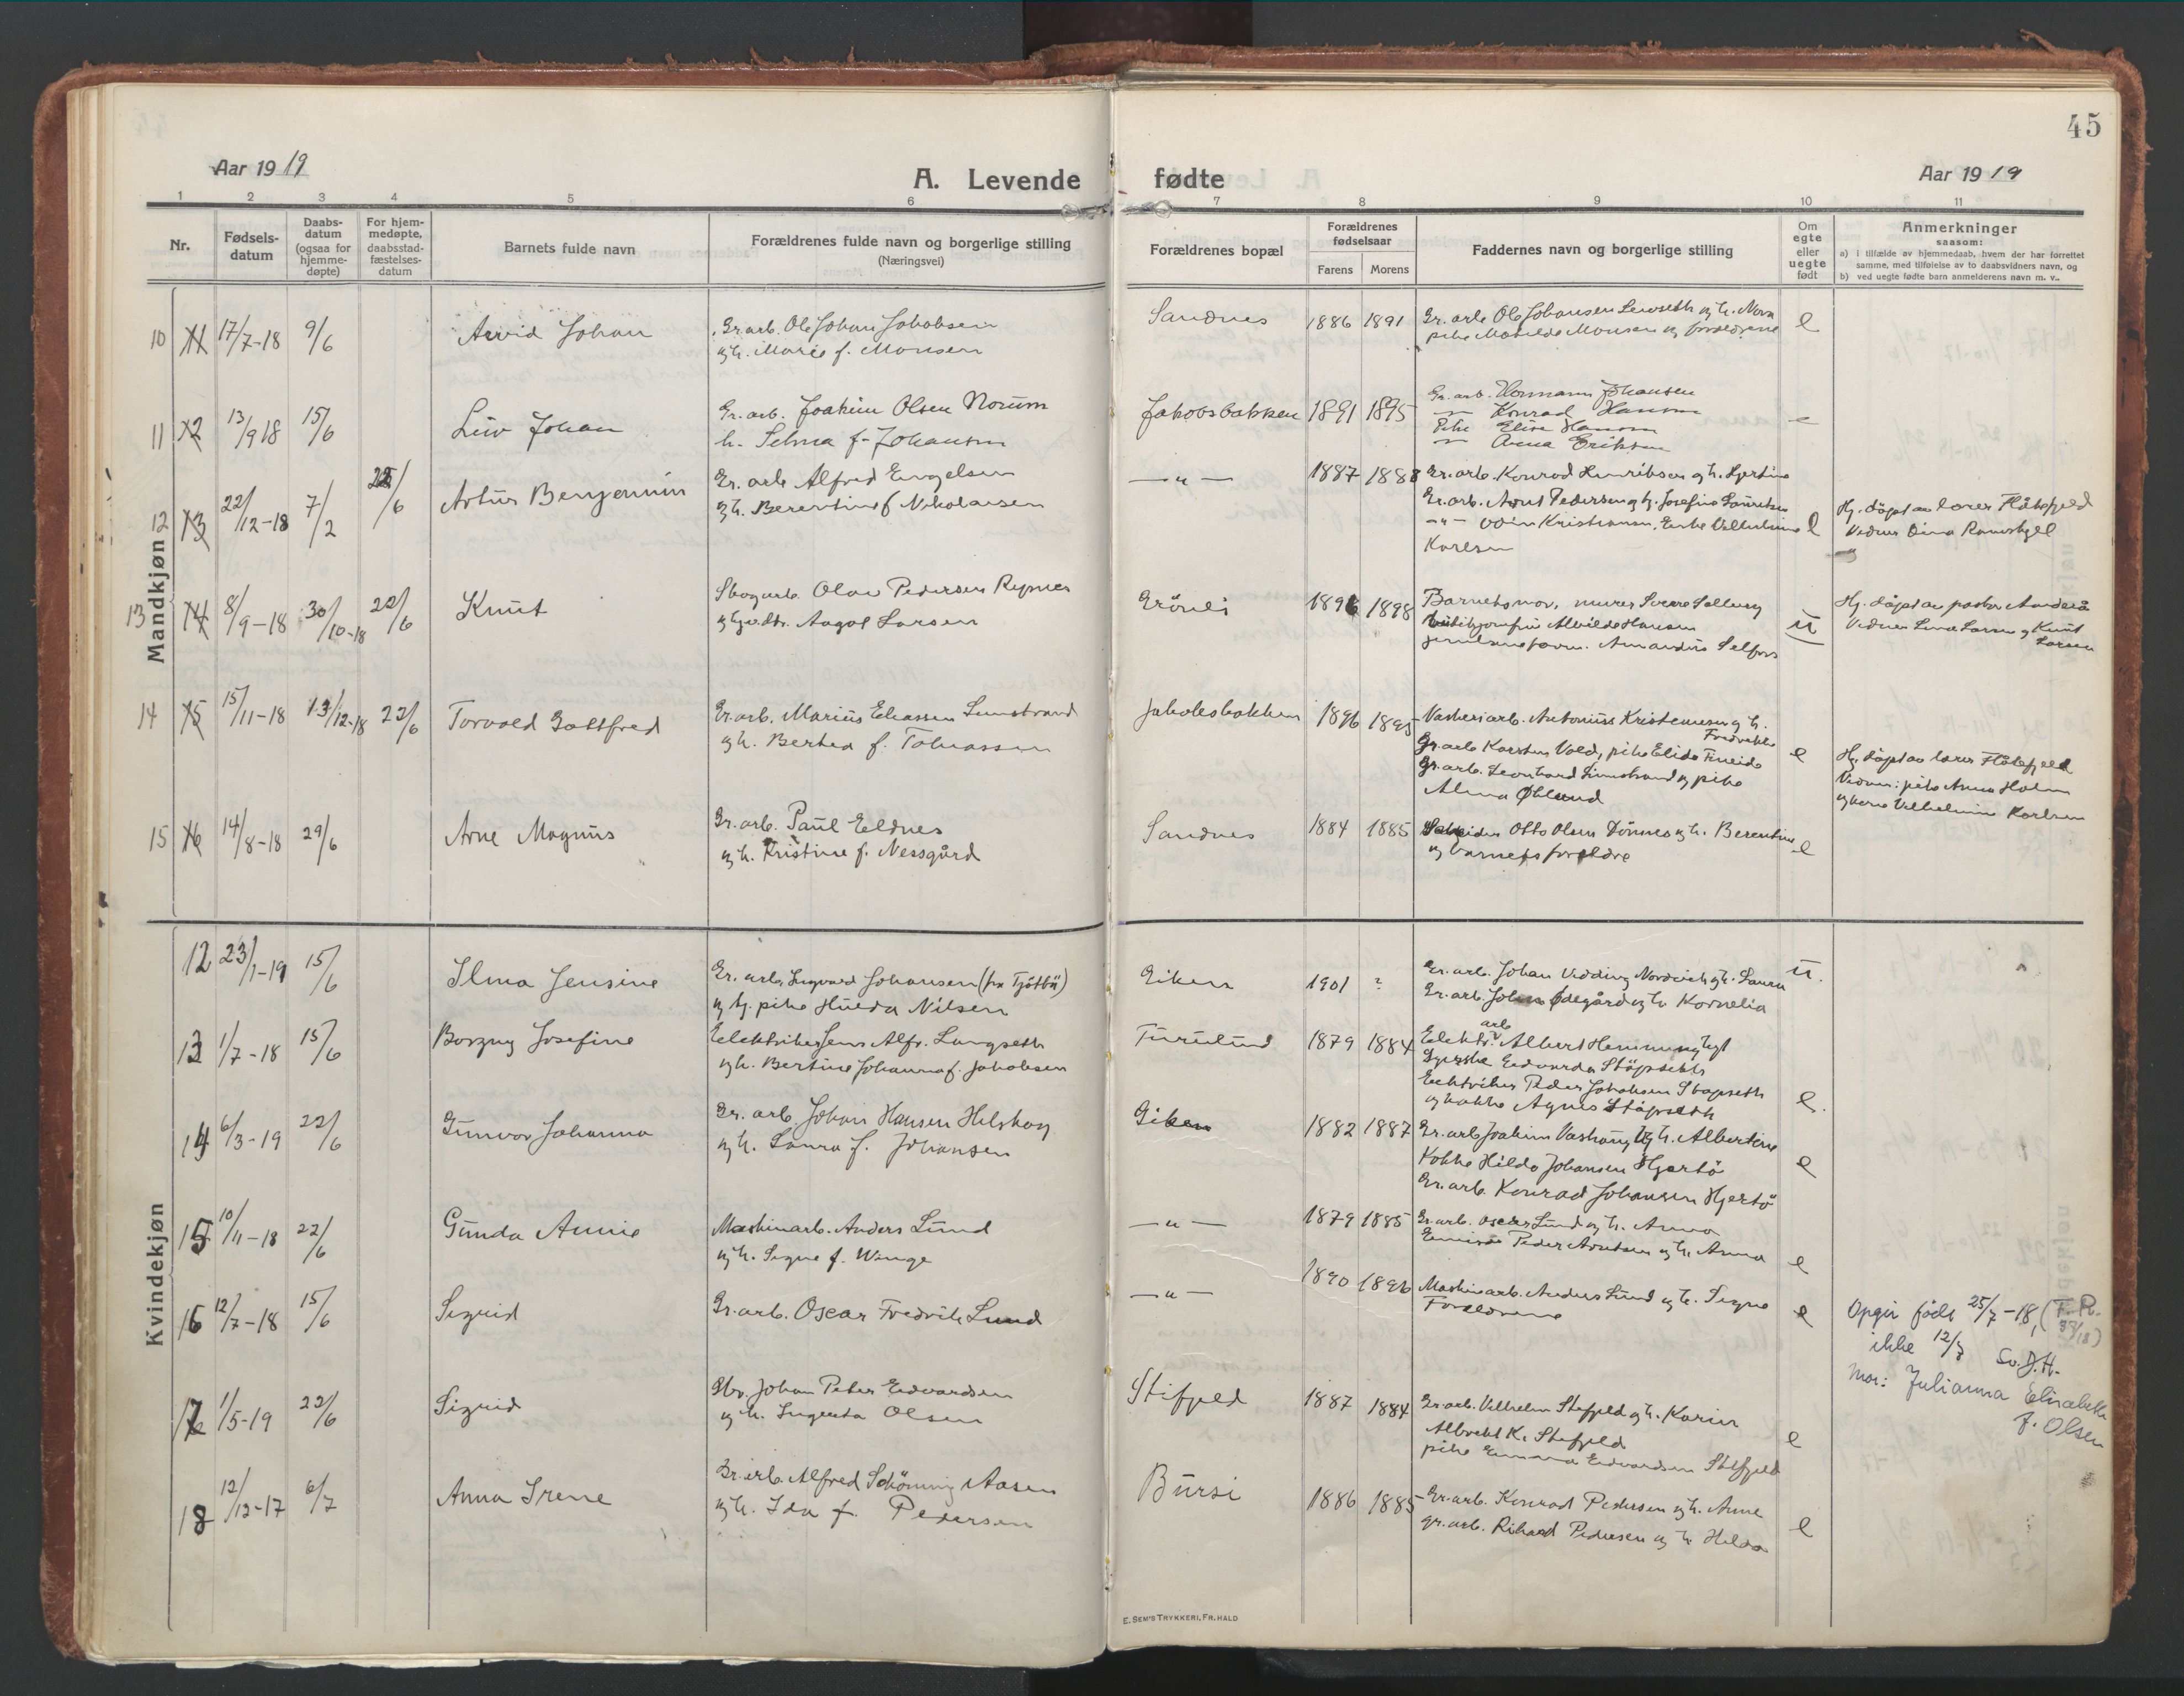 45
Aar 1919
A. Levende fødte
Aar 1919
1 2 3 4 5 6 7 8 9 10 11
Nr.
Fødsels-
datum
Daabs-
datum
(ogsaa for
hjemme-
døpte)
For hjem-
medøpte,
daabsstad-
fæstelses-
datum
Barnets fulde navn
Forældrenes fulde navn og borgerlige stilling
(Næringsvei)
Forældrenes bopæl
Forældrenes
fødselsaar
Farens Morens
Faddernes navn og borgerlige stilling
Om
egte
eller
uegte
født
Anmerkninger
saasom:
a) i tilfælde av hjemmedaab, hvem der har forrettet
samme, med tilføielse av to daabsvidners navn, og
b) ved uegte fødte barn anmelderens navn m. v..
Mandkjøn
10 11 17/7-18 9/6 Arvid Johan
Gr.arb. Ole Johan Jakobsen
og h. Marie f. Monsen
Sandnes 1886 1891
Gr. arb Ole Johansen og h. Nora
pike Matilde Monsen og forældrene
e
11 12 13/9 18 15/6 Liv Johan
Gr. arb. Joakim Olsen Norum
h. Selma f. Johansen
Jakobsbakken 1891 1895
Gr. arb. Hermann Johansen
Konrad Hansen
Pike Elise Hansen
Anna Eriksen
e
12 13 22/12-18 7/2 22/6 Artur Benjamin
Gr. arb Alfred Engelsen
og h. Berentine f Nikolaisen
-"- 1887 1888
Gr. arb. Konrad Henriksen og h. Hjertine
Gr. arb. Arnt Pedersen og h. Josefine Lauritsen
-"- Odin Kristiansen, Enke Vilhelmine
Karlsen
e
Hj. døpt av lærer Flåtefjeld
Vidner Dina
13 14 8/9-18 30/10-18 22/6 Knut
Skogarb. Olav Pedersen
Aagot Larsen
Grönli 1896 1898
Barnets mor, murer Sverre Solberg
Alvilde Hansen
u
Hj. døpt av pastor
Vidner Lina Larsen og Knut
Larsen
14 15 15/11-18 13/12-18 22/6 Torvald Gottfred
Gr.arb. Marius Eliassen Lunestrand
og h. Berthea f. Tobiassen
Jakobsbakken 1896 1895
Vaskeriarb. Antonius Kristensen og h.
Fredrikke
Gr. arb Karsten Vold, pike Elida Fineide
Gr. arb. Leonhard Lunestrand og pike
Alma Økland
e
Hj. døpt av lærer Flåtefjeld
Vidner: pike Anna Holm
og kone Vilhelmine Karlsen
15 16 14/8-18 29/6 Arne Magnus
Gr. arb. Paul Eldnes
og h. Kristine f. Nessgård
Sandnes 1884 1885
Otto Olsen Dönnes og h. Berentine
og barnets forældre
e
Kvindekjøn
12 23/1-19 15/6 Ilma Jensine
Gr. arb. Ingvard Johansen (fra Tjötta)
og tj. pike Hulda Nilsen
Giken 1901 ?
Gr. arb. Johan Vedding Nordvik og h. Laura
Gr. arb. Johan Ødegård og h. Kornelia
u.
13 1/7-18 15/6 Borgny Josefine
Elektriker Jens Alfr. Langseth
og h. Bertine Johanna f. Jakobsen
Furulund 1879 1884
Elektr. arb Albert Hemming
Edvarda Støpseth
Elektriker Peder Jakobsen Støpseth
og kokke Agnes Støpseth
e.
14 6/3-19 22/6 Gunvor Johanna
Gr. arb. Johan Hansen Helskog
og h. Laura f. Johansen
Giken 1882 1887
Gr. arb Joakim og h. Albertine
Kokke Hilda Johansen Hjertö
Gr. arb. Konrad Johansen Hjertö
e
15 10/11-18 22/6 Gunda Annie
Maskinarb. Anders Lund
og h. Signe f. Winge
-"- 1879 1885
Gr. arb. Oscar Lund og h. Anna
Peder Arntsen og h. Anna
e
16 12/7-18 15/6 Sigrid
Gr. arb. Oscar Fredrik Lund
-"- 1890 1896
Maskinarb. Anders Lund og h. Signe
Forældrene
e
Opgir født 25/7-18,
ikke 12/7 Sv.D.H.
Mor: Julianna Elisabeth
f. Olsen
17 1/5-19 22/6 Sigrid
Johan Peter Edvardsen
og h. Ingerta Olsen
Stifjeld 1887 1884
Gr. arb. Vilhelm Stifjeld og h. Karin
Albrekt K. Stifjeld
pike Emma Edvardsen Stifjeld
e
18 12/12-17 6/7 Anna Irene
Gr. arb. Alfred Schöning Aasen
og h. Ida f. Pedersen
Bursi 1886 1885
Gr. arb. Konrad Pedersen og h. Anne
gr. arb. Rikard Pedersen og h. Hilda
e
E. SEM'S TRYKKERI, FR. HALD